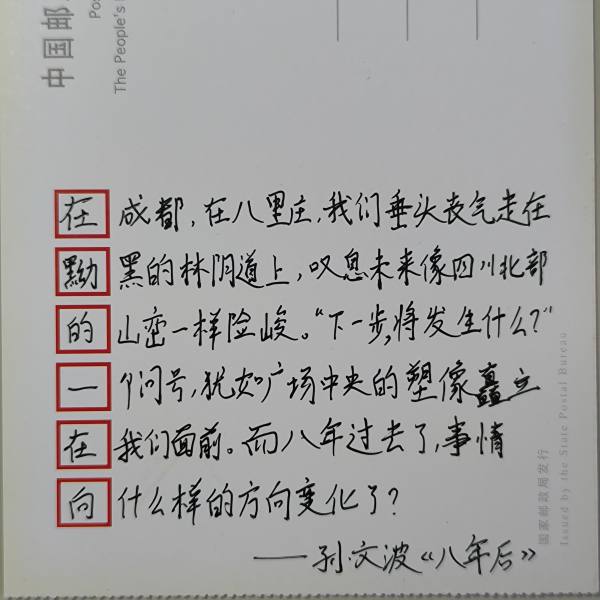 中国邮
Pos
The People's
在成都，在八里庄，我们垂头丧气走在
黝黑的林阴道上，叹息未来像四川北部
的山峦一样险峻。“下一步，将发生什么？”
一个问号，犹如广场中央的塑像矗立
在我们面前。而八年过去了，事情
向什么样的方向变化了？
——孙文波《八年后》
国家邮政局发行
Issued by the State Postal Bureau